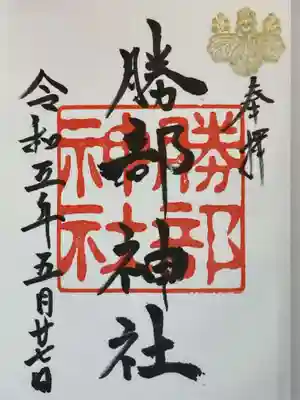 奉拝
勝部神社
勝部神社
令和五年五月廿七日